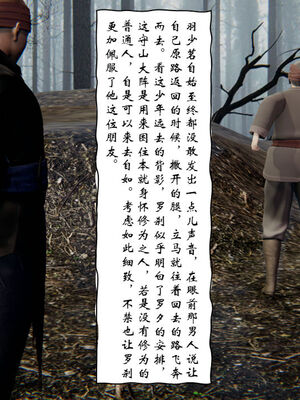 羽少茗自始至终都没敢发出一点儿声音，在眼前那男人说让
自己原路返回的时候，撒开的腿，立马就往着回去的路飞奔
而去。看这少年远去的背影，罗刹似乎明白了罗夕的安排，
这守山大阵是用来困住本就身怀修为之人，若是没有修为的
普通人，自是可以来去自如。考虑如此细致，不禁也让罗刹
更加佩服了他这位朋友。